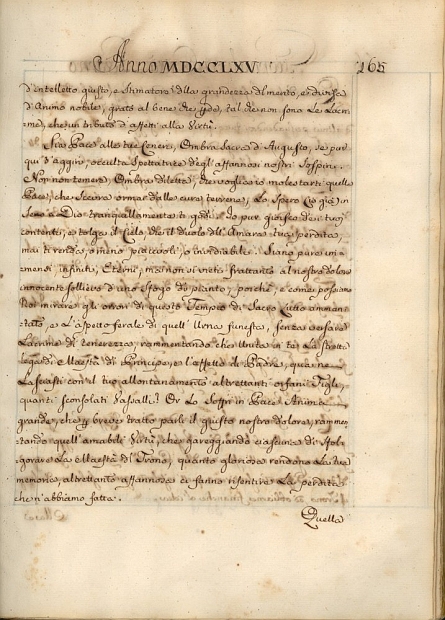 Anno MDCCLXV 165
d'intelletto giusto, e stimatore della grandezza del merito, e divisa
d'Animo nobile, grato al bene che gode, tal che non sono Le Lacri-
me, che un tributo d'affetti alla Virtù.
Sia Pace alle tue Ceneri, Ombra Sacra d'Augusto, se pur
qui t'aggiri, occulta Spettatrice degl'affannosi nostri Sospiri.
Non non temere, Ombra diletta, che voglia io molestarti quella
Pace, che Sicura ormai dalle cure terrene, Lo Spero (so già) in
Seno a Dio tranquillamente ti godi. Io pur gioisco de tuoi
contenti, e tolga il Cielo che il duolo dell'Amara tua perdita,
mai ti renda, o meno piacevoli, o invidiabili. Siano pure im-
mensi, infiniti, Eterni, ma non si vieti frattanto al nostro dolore
innocente sollievo d'uno sfogo di pianto, poichè, e come possiamo
Noi mirare gli orrori di questo Tempio di Sacro Lutto amman-
tato, e L'aspetto ferale di quell'Urna funesta, senza versare
Lacrime di tenerezza, rammentando che Unita in te La
Maestà di Principe, e l'affetto di Padre, qua ne
Lasciasti con il tuo allontanamento altrettanti orfani Figli,
quanti sconsolati Vassalli? Or Lo Soffri in Pace Anima
grande, che p breve tratto parli il giusto nostro dolore, rammen-
tando quell'amabili Virtù, che gareggiando ciascuna di
La Maestà di Trono, quanto gloriosa rendono La tua
memoria, altrettanto affannosa ci fanno risentire La perdita
che n'abbiamo fatta.
Quella